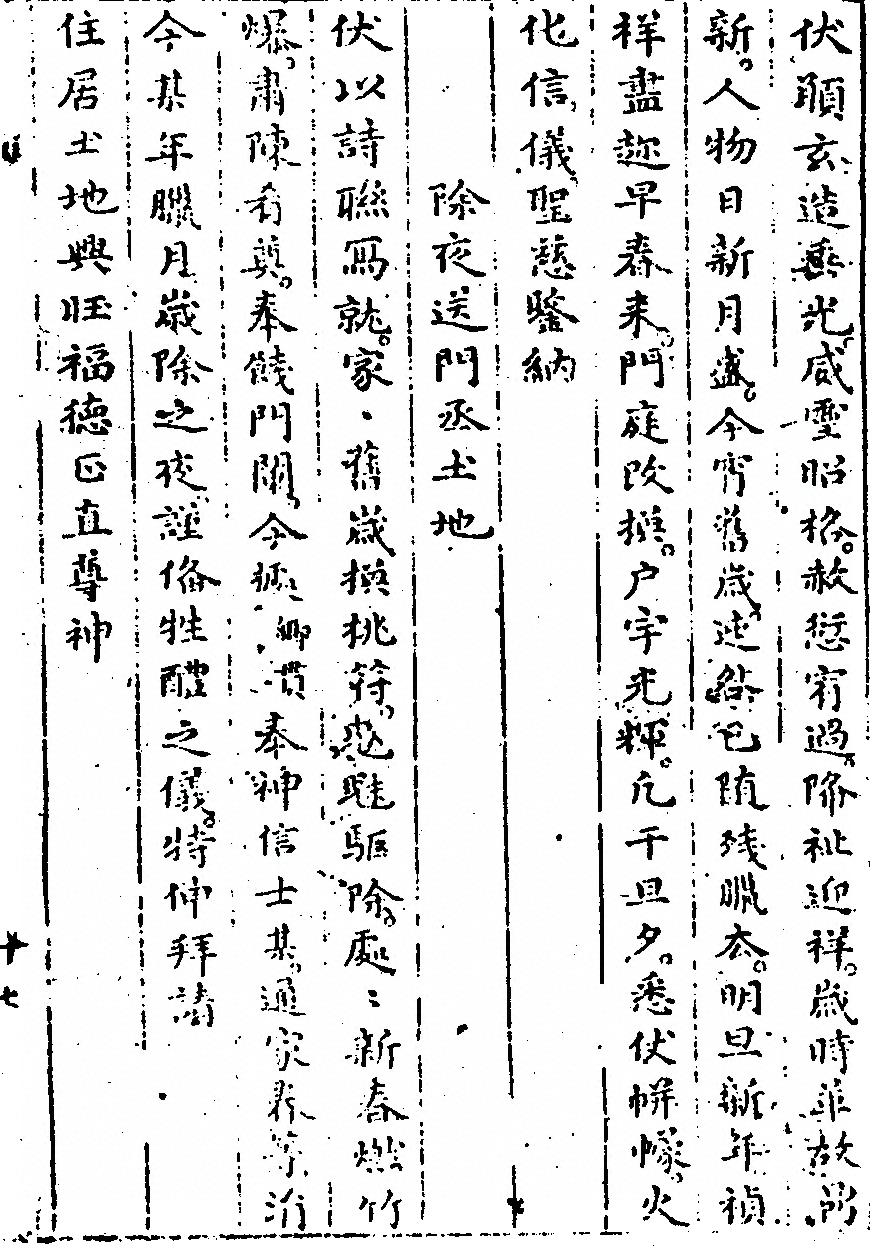 伏願玄造垂光。威灵昭格。赦愆宥過。降祉迎祥。歲時華故鼎
新。人物日新月盛。今宵舊歲迯綌已随残臘去。明旦新年禎
祥盡趂早春来。門庭改換。户宇光輝。凡干旦夕。悉伏帡幪。火
化信儀。聖慈鑒納
除夜送門丞土地
伏以詩聯寫就。家〻舊歲換桃符。魑魅驅除。處〻新春燃竹
爆。肅陳肴奠。奉餞門關。今據鄉貫奉神信士某。通家眷等。洎
今某年臘月歲除之夜。謹俻牲醴之儀。特伸拜請
住居土地興旺福德正直尊神
十七